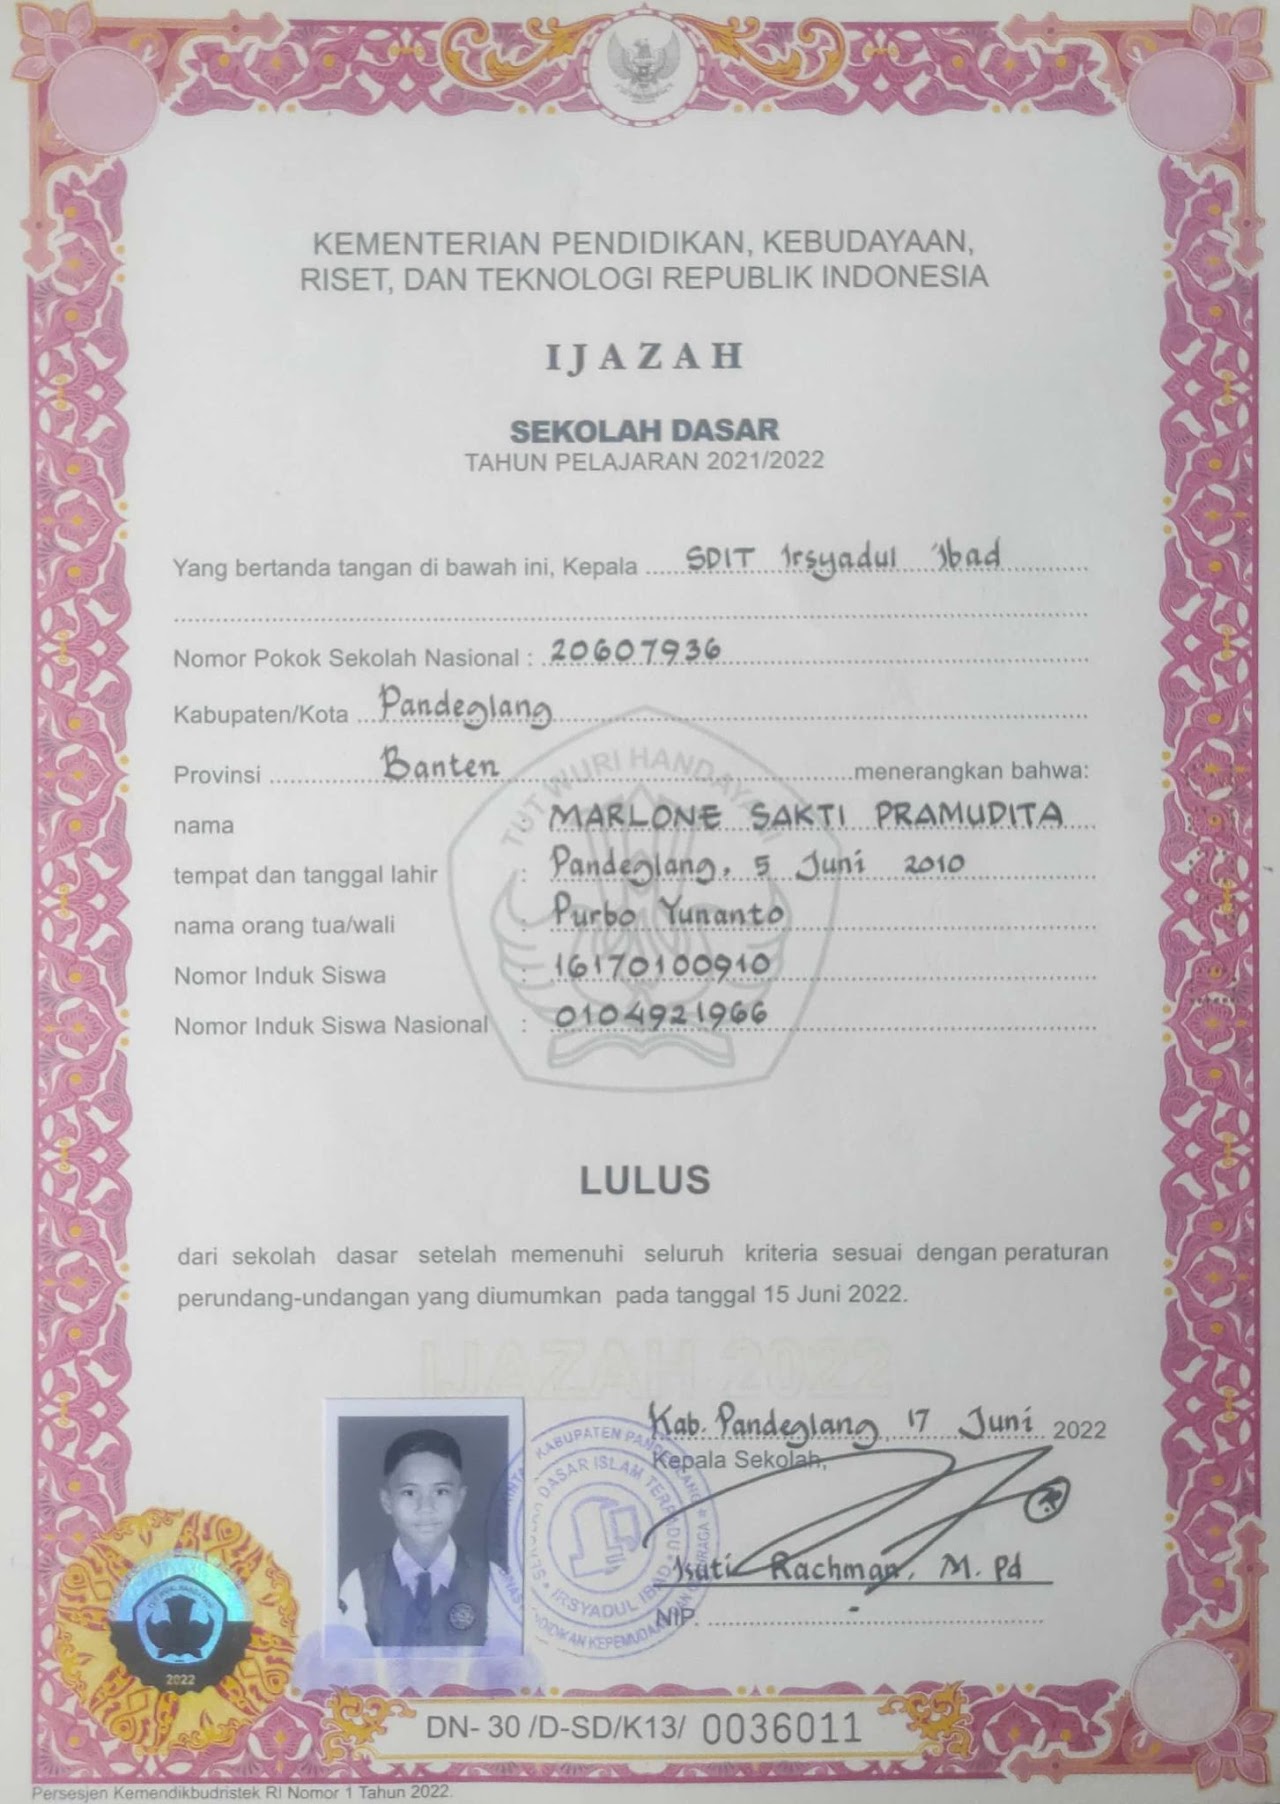 KEMENTERIAN PENDIDIKAN, KEBUDAYAAN,
RISET, DAN TEKNOLOGI REPUBLIK INDONESIA
IJAZAH
SEKOLAH DASAR
TAHUN PELAJARAN 2021/2022
Yang bertanda tangan di bawah ini, Kepala SDIT Irsyadul 'Ibad
Nomor Pokok Sekolah Nasional : 20607936
Kabupaten/Kota Pandeglang
Provinsi Banten menerangkan bahwa:
nama : MARLONE SAKTI PRAMUDITA
tempat dan tanggal lahir : Pandeglang, 5 Juni 2010
nama orang tua/wali : Purbo Yunanto
Nomor Induk Siswa : 16170100910
Nomor Induk Siswa Nasional : 0104921966
TUT WURI HANDAYANI
LULUS
dari sekolah dasar setelah memenuhi seluruh kriteria sesuai dengan peraturan
perundang-undangan yang diumumkan pada tanggal 15 Juni 2022.
IJAZAH 2022
Kab. Pandeglang, 17 Juni 2022
Kepala Sekolah,
Rachman, M. Pd
NIP. -
KABUPATEN PANDEGLANG
SEKOLAH DASAR ISLAM TERPADU
IRSYADUL IBAD
TUT WURI HANDAYANI
2022
DN- 30 /D-SD/K13/ 0036011
Persesjen Kemendikbudristek RI Nomor 1 Tahun 2022.